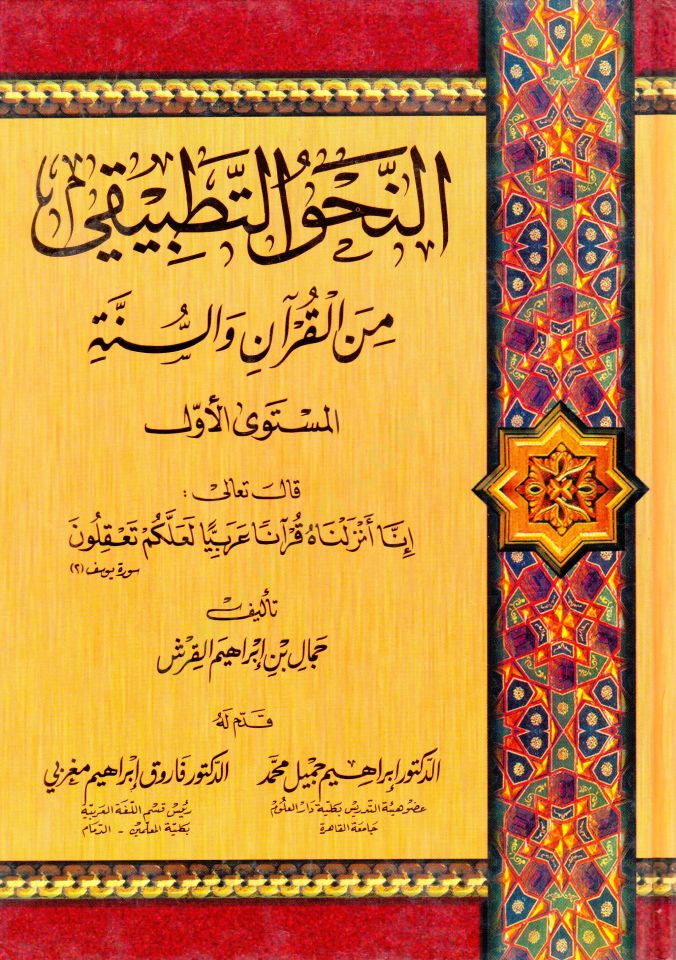 النَّحْوُ التَّطْبِيقِيُّ
مِنَ الْقُرْآنِ وَالسُّنَّةِ
المستوى الأوّل
قال تعالى :
إِنَّا أَنْزَلْنَاهُ قُرْآنًا عَرَبِيًّا لَعَلَّكُمْ تَعْقِلُونَ
سورة يوسف (٢)
تأليف
جمال بن إبراهيم القرش
قدّم له
الدكتور إبراهيم جميل محمّد
عضو هيئة التدريس بكلية دار العلوم
جامعة القاهرة
الدكتور فاروق إبراهيم مغربي
رئيس قسم اللغة العربية
بكلية المعلمين - الدمام